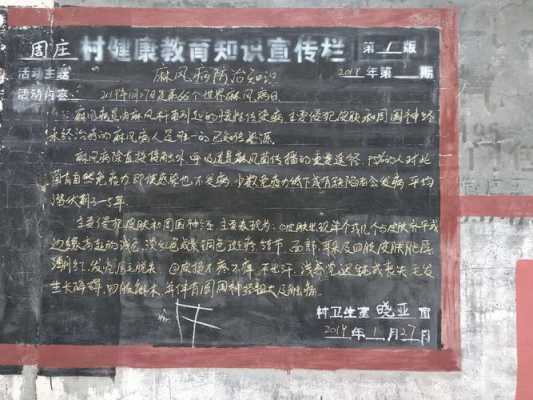 周庄 村健康教育知识宣传栏 第1版
活动主题 麻风病防治知识 2019年第 期
活动内容: 2019年1月27日是第66个世界麻风病日
麻风病是由麻风杆菌引起的慢性传染病,主要侵犯皮肤和周围神经
未经治疗的麻风病人是唯一的已知传染源。
麻风病除直接接触外 飞沫是麻风菌传播的重要途径 的人对此
菌有自然免疫力 即使感染也不发病 少数免疫力低下或有缺陷者会发病 平均
潜伏期2-5年。
主要侵犯皮肤和周围神经 主要表现为: 皮肤出现单个或几个与皮肤齐平或
边缘 的 面部 耳朵及四肢皮肤
潮红 发亮 眉毛脱失 ②皮损不痛不痒 不出汗 浅感觉迟钝或丧失 毛发
生长障碍 四肢麻木 并伴有周围神经粗大及触痛
村卫生室 晓亚 宣
2019年1月27日